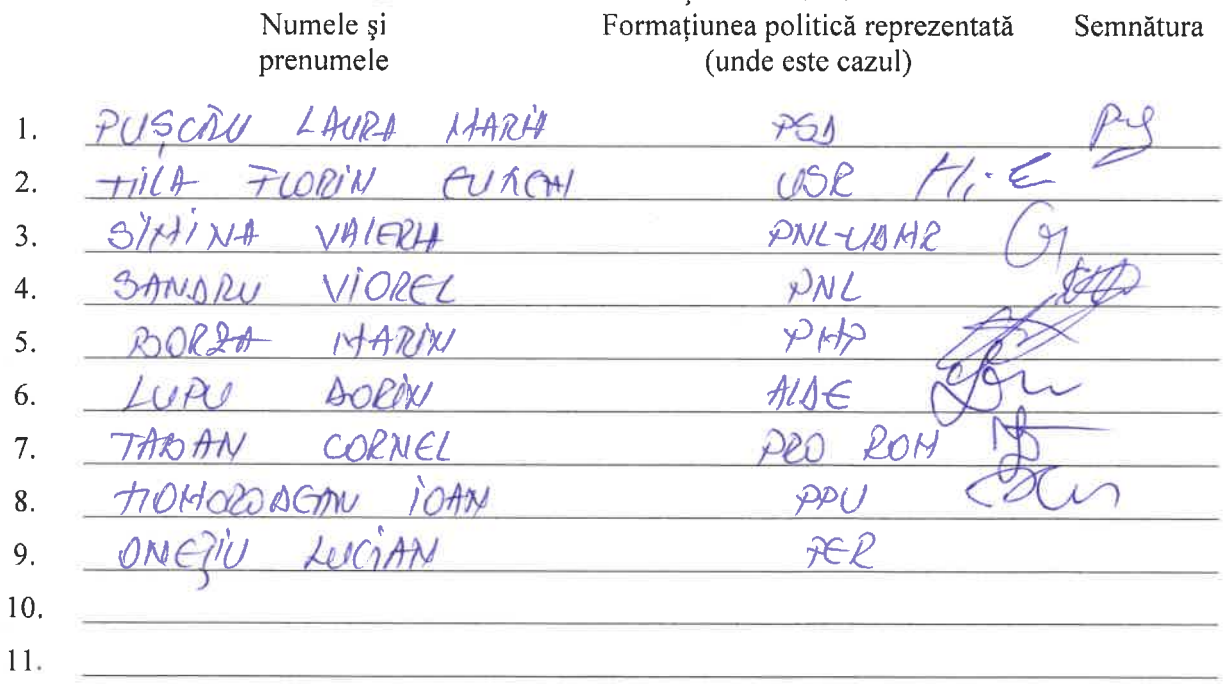 Numele şi prenumele Formaţiunea politică reprezentată (unde este cazul) Semnătura
1. PUŞCĂU LAURA MARIA PSD
2. HILA FLORIN USR
3. SIMINA VALERIA PNL-UDMR
4. SANDRU VIOREL PNL
5. BORZA MARIN PMP
6. LUPU DORIN ALDE
7. TABAN CORNEL PRO ROM
8. IOAN PPU
9. ONEŢIU LUCIAN PER
10.
11.